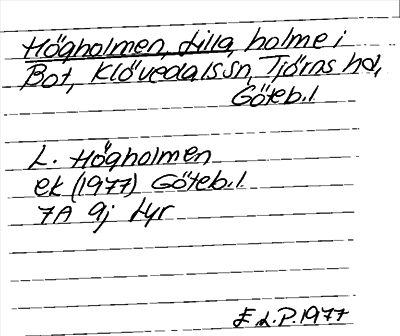 Högholmen, Lilla, holme i
Bot, Klövedals sn, Tjörns hd,
Göteb.l
L. Högholmen
ek (1977) Göteb.l.
7A 9j Lyr
E L.P. 1977